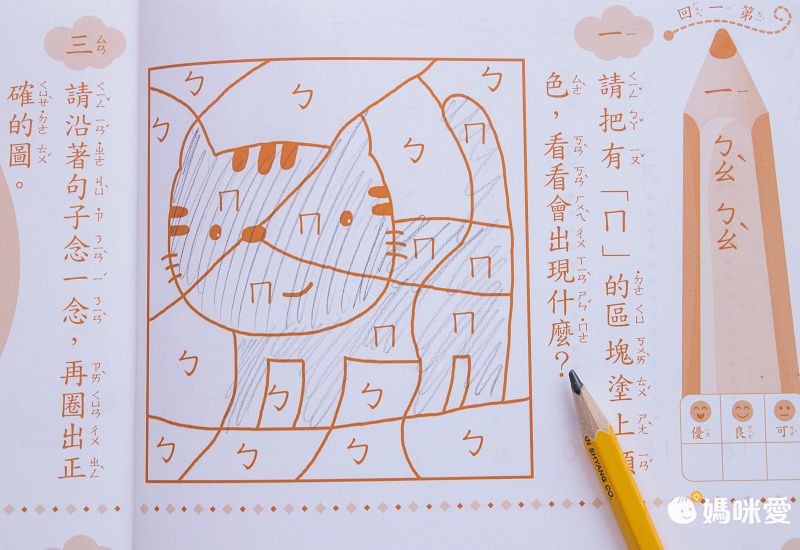 第一回
一
ㄅㄠˋ ㄅㄠ
優 良 可
一
請把有「ㄇ」的區塊塗上顏
色，看看會出現什麼？
ㄅ ㄅ ㄅ
ㄅ ㄅ ㄇ
ㄇ ㄇ ㄇ ㄇ
ㄇ ㄇ ㄇ
ㄅ ㄅ ㄅ
ㄅ ㄅ ㄅ ㄅ
三
請沿著句子念一念，再圈出正
確的圖。
AN SHYANG CO.
媽咪愛